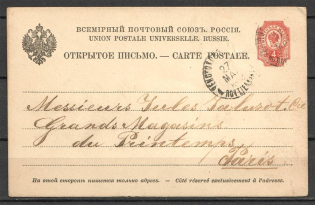 ВСЕМІРНЫЙ ПОЧТОВЫЙ СОЮЗЪ. РОССІЯ.
UNION POSTALE UNIVERSELLE. RUSSIE.
ОТКРЫТОЕ ПИСЬМО. — CARTE POSTALE.
Messieurs Jules Jaluzot, &Cie
Grands Magasins
du Printemps,
Paris
На этой сторонѣ пишется только адресъ. — Côté réservé exclusivement à l'adresse.